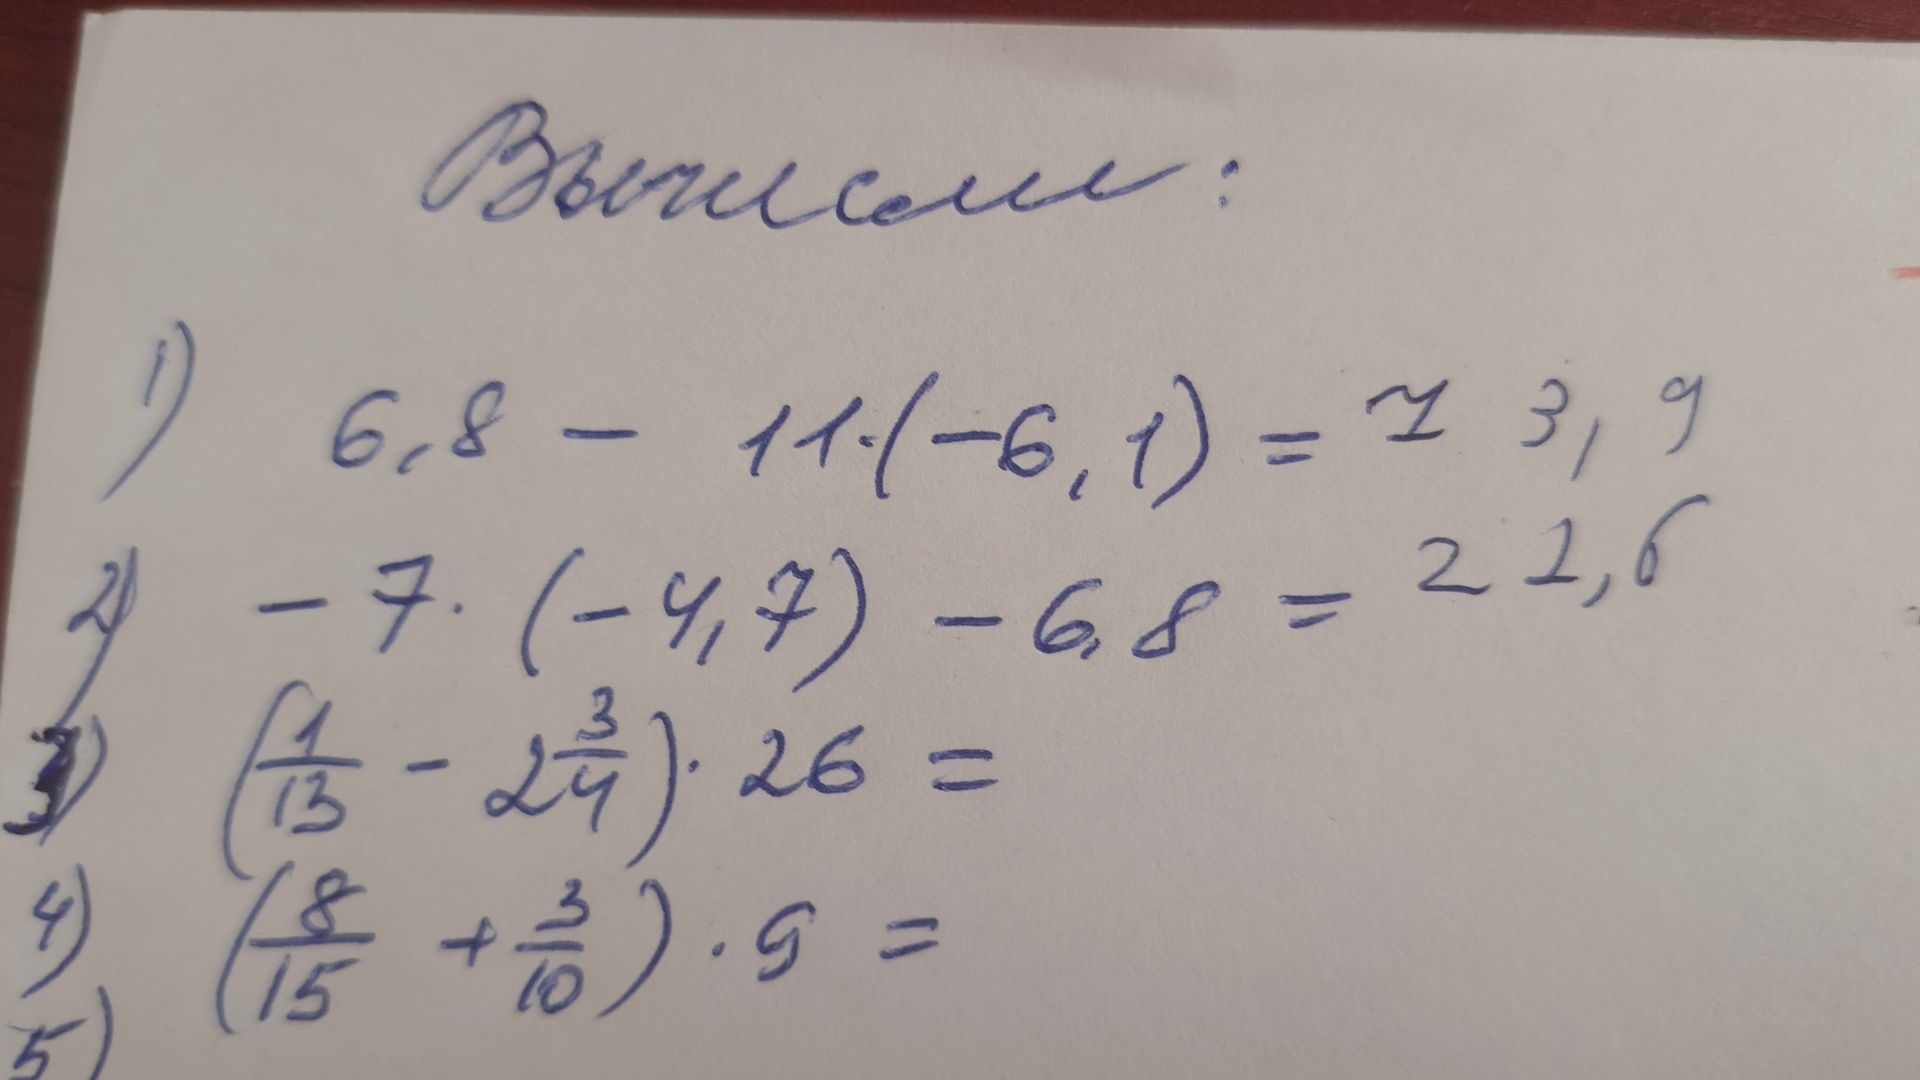 Вычисли:
1) 6,8 - 11·(-6,1) = 73,9
2) -7·(-4,7) - 6,8 = 22,6
3) (1/13 - 2 3/4)·26 =
4) (8/15 + 3/10)·9 =
5)